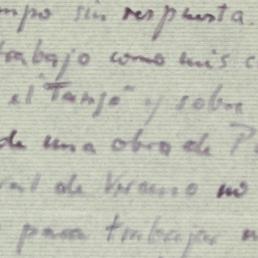 mpo sin respuesta.
trabajo como mis c
el "Tango" y sobre
de una obra de P
de Verano no
para trabajar